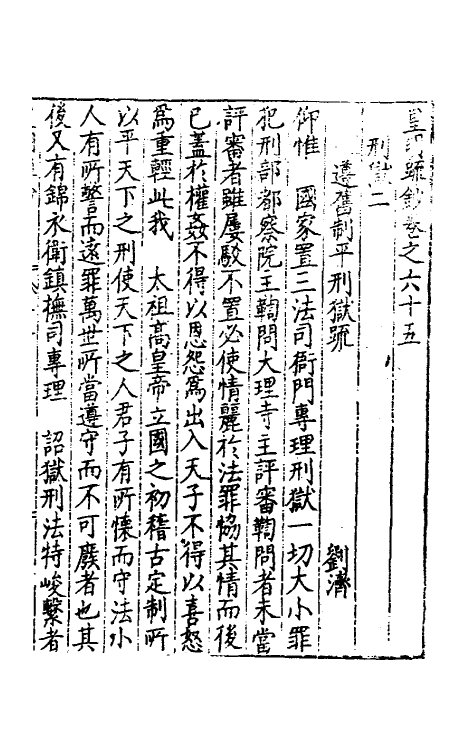 皇明疏鈔卷之六十五
刑獄二
遵舊制平刑獄疏 劉濟
仰惟 國家置三法司衙門專理刑獄一切大小罪
犯刑部都察院主鞫問大理寺主評審鞫問者未當
評審者雖屢駁不置必使情麗於法罪協其情而後
已蓋於權姦不得以恩怨為出入天子不得以喜怒
為重輕此我 太祖高皇帝立國之初稽古定制所
以平天下之刑使天下之人君子有所懷而守法小
人有所警而遠罪萬世所當遵守而不可廢者也其
後又有錦衣衛鎮撫司專理 詔獄刑法特峻繫者